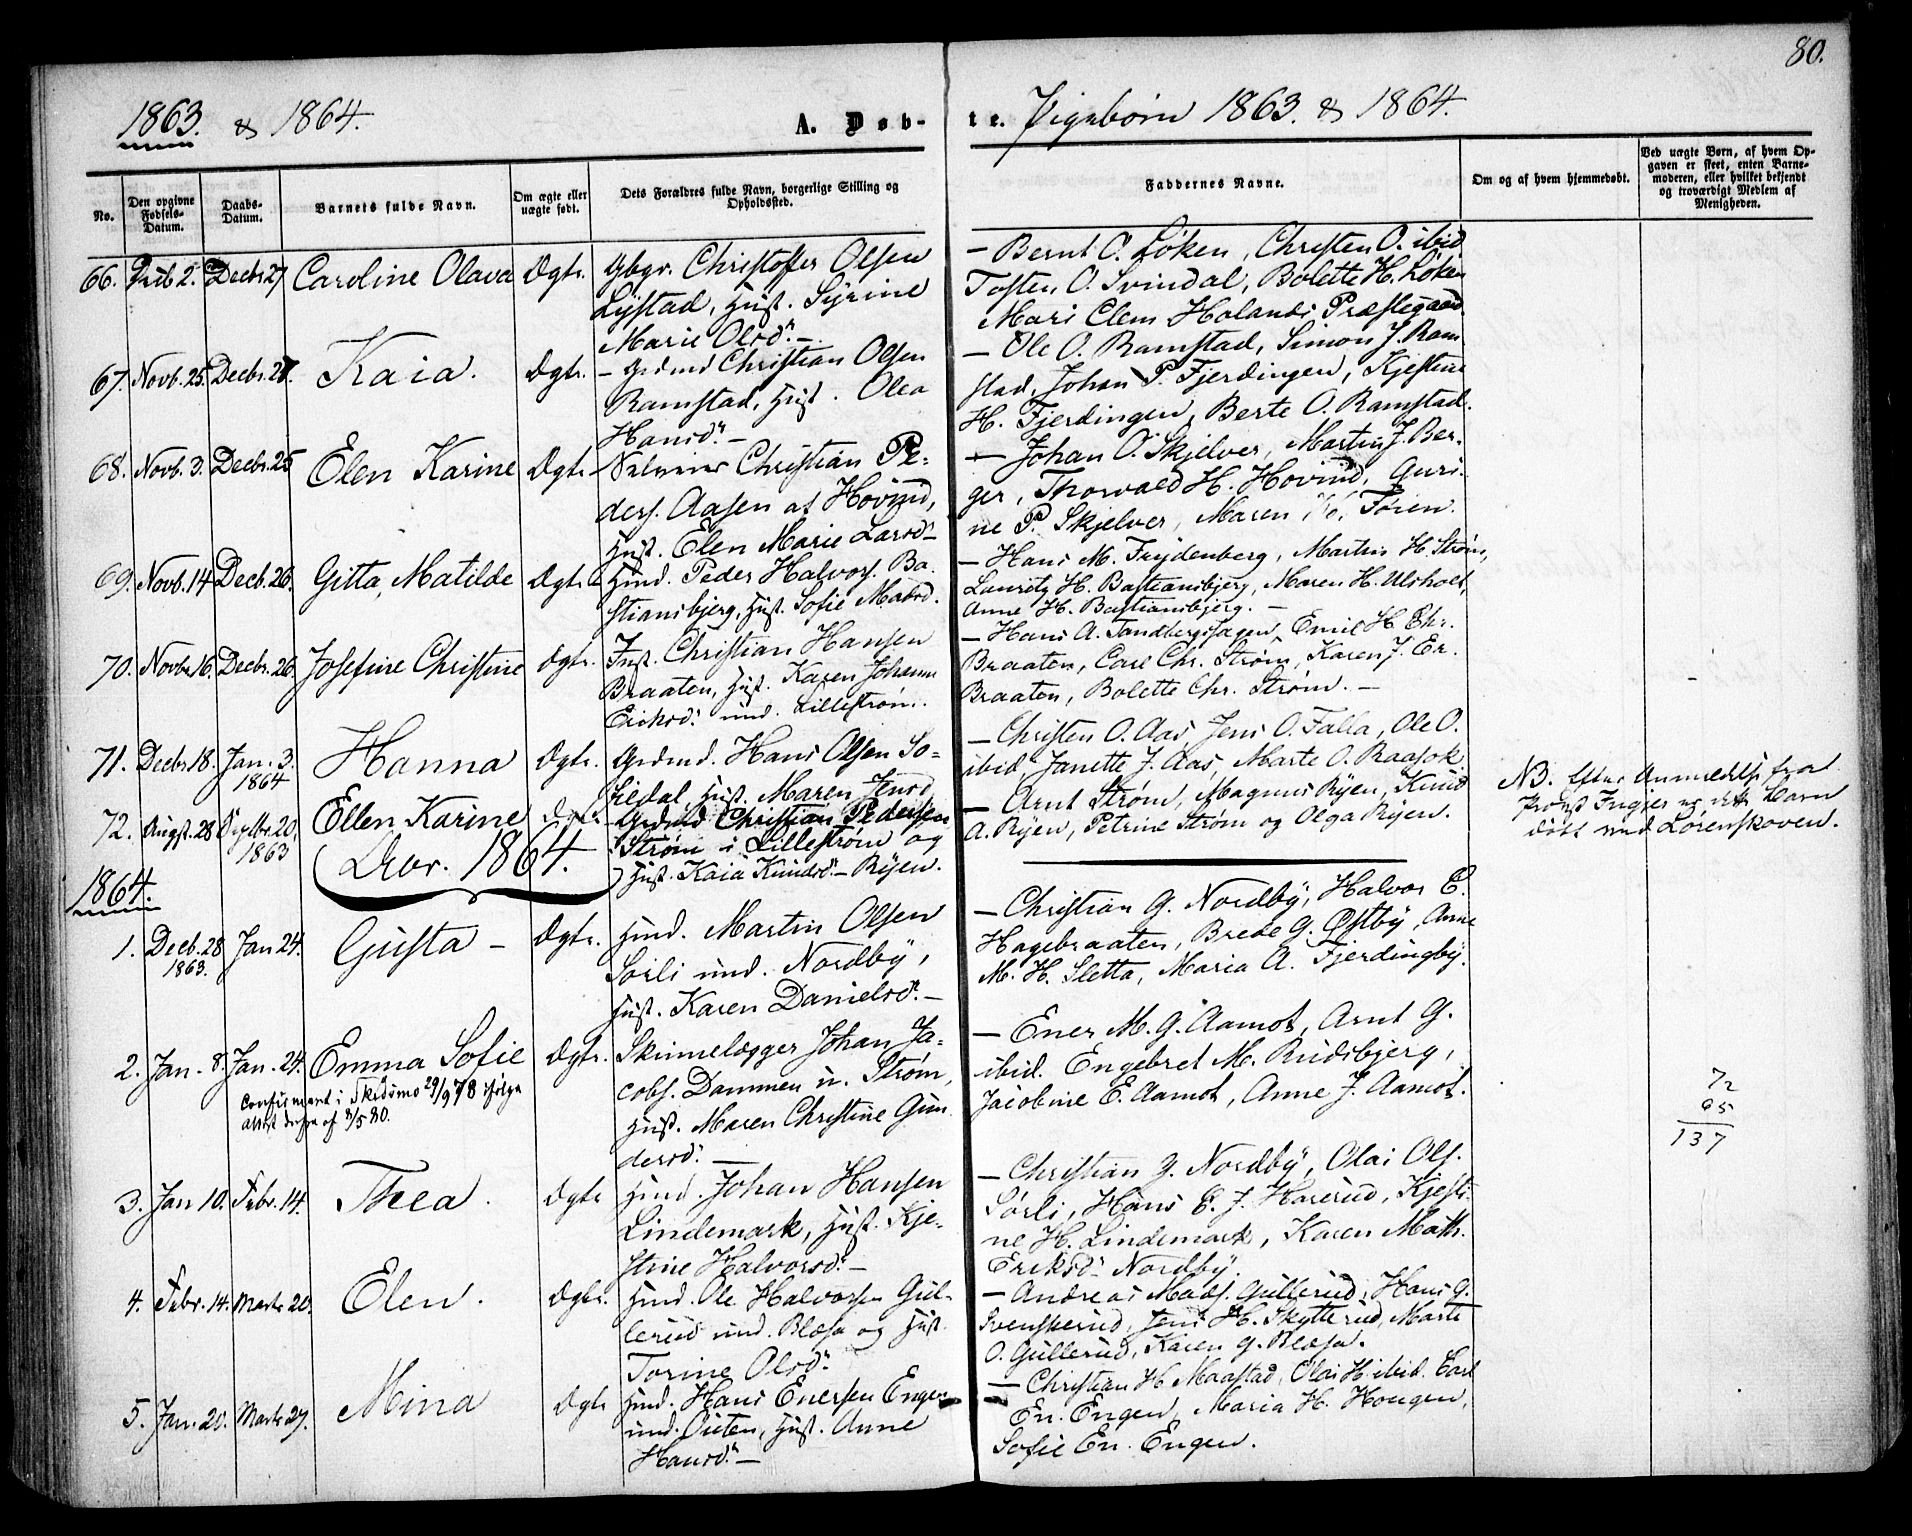 80.
1863. & 1864.
A. Døb-
te. Pigebørn 1863. & 1864.
No.
Den opgivne Fødsels-Datum.
Daabs-Datum.
Barnets fulde Navn.
Om ægte eller uægte født.
Dets Forældres fulde Navn, borgerlige Stilling og Opholdssted.
Faddernes Navne.
Om og af hvem hjemmedøbt.
Ved uægte Børn, af hvem Opgaven er skeet, enten Barnemoderen, eller hvilket bekjendt og troværdigt Medlem af Menigheden.
66. 2. Decbr. 27 Caroline Olava Dgtr. Gbgr. Christoffer Olsen
Lystad, Hust. Syrine
Marie Olsd. –
– Bernt O. Løken, Christen O. ibid
Tosten O. Svindal, Bolette H. Løken
Mari Clem Holands Præstegaard.
67. Novb. 25. Decbr. 27. Kaia. Dgtr. – Grdmd Christian Olsen
Ramstad, Hust. Olea
Hansd. –
– Ole O. Ramstad, Simon J. Ram
stad, Johan P. Fjerdingen, Kjestine
H. Fjerdingen, Berte O. Ramstad.
68. Novb. 3. Decbr. 25 Elen Karine Dgtr. Selveier Christian Pe-
ders. Aasen af Hovind,
Hust. Elen Marie Larsd –
– Johan O. Skjelver, Martin J. Ber-
ger, Thorvald H. Hovind, Guri-
ne P. Skjelver, Maren Tøien.
69. Novb. 14 Decb. 26. Gitta Matilde Dgtr. Hmd. Peder Halvors. Ba-
stiansbjerg, Hust. Sofie Matsd.
– Hans M. Frydenberg, Martin H. Strøm,
Lauritz H. Bastiansbjerg, Maren H. Ulsholt,
Anne H. Bastiansbjerg. –
70. Novbr 16. Decbr. 26. Josefine Christine Dgtr. Inst. Christian Hansen
Braaten, Hust. Karen Johanne
Eriksd. und. Lillestrøm.
– Hans A. Tandbergshagen, Emil H. Chr.
Braaten, Carl Chr. Strøm, Karen J. Er.
Braaten, Bolette Chr. Strøm. –
71. Decbr 18. Jan. 3. Hanna Dgtr. Grdmd. Hans Olsen So-
1864
lildal Hust. Maren Jensd
– Christen O. Aas, Jens O. Falla, Ole O.
ibid, Janette J. Aas, Marte O. Raasok.
72. Augst. 28 20. Ellen Karine Dgtr. Grdmd Christian Pedersen
1863
Strøm i Lillestrøm og
Hust. Kaia Knudsd. – Ryen.
– Arnt Strøm, Magnus Ryen, Knud
A. Ryen, Petrine Strøm og Olga Ryen.
NB. Efter Anmeldelse fra
Provst er dette Barn
døbt ved Lørenskoven.
Aar. 1864.
1864.
1. Decb. 28 Jan 24. Gusta – Dgtr. Hmd. Martin Olsen
1863.
Sorli und. Nordby,
Hust. Karen Danielsd. –
– Christian G. Nordby, Halvor E.
Hagebraaten, Brede G. Østby, Anne
M. H. Sletta, Maria A. Fjerdingby.
2. Jan. 8. Jan. 24. Emma Sofie Dgtr. Skinnelægger Johan Ja-
cobs. Dammen u. Strøm,
Hust. Maren Christine Gun
dersd. –
Confirmeret i Skedsmo 29/9 78 ifølge
Attest derfra af 3/5 80.
– Ener M. G. Aamot, Arnt G.
ibid. Engebret M. Rudsbjerg,
Jacobine E. Aamot, Anne J. Aamot.
72
65
137
3. Jan 10. Febr. 14. Thea. Dgtr Hmd. Johan Hansen
Lindemark, Hust. Kje-
stine Halvorsd. –
– Christian G. Nordby, Olai Ols.
Sørli, Hans E. J. Harerud, Kjesti-
ne H. Lindemark, Karen Math.
Eriksd Nordby.
4. Febr. 14. Marts 20. Elen. Dgtr. Hmd. Ole Halvorsen Gul-
lerud und. Blæsa og Hust.
Torine Olsd.
– Andreas Mads. Gullerud, Hans G.
Svenskerud, Jens H. Skytterud, Marte
O. Gullerud, Karen G. Blæsa.
5. Jan. 20. Marts 27. Mina Dgtr Hmd. Hans Enersen Engen
und. Hust. Anne
Hansd. –
– Christian H. Maastad, Olai H. ibid. Carl
En. Engen, Maria H. Hougen,
Sofie En. Engen.